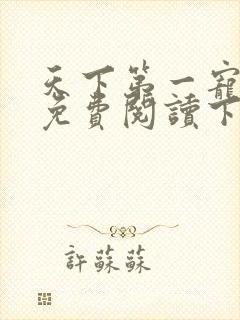 天下第一寵
免費閱讀下
許蘇蘇